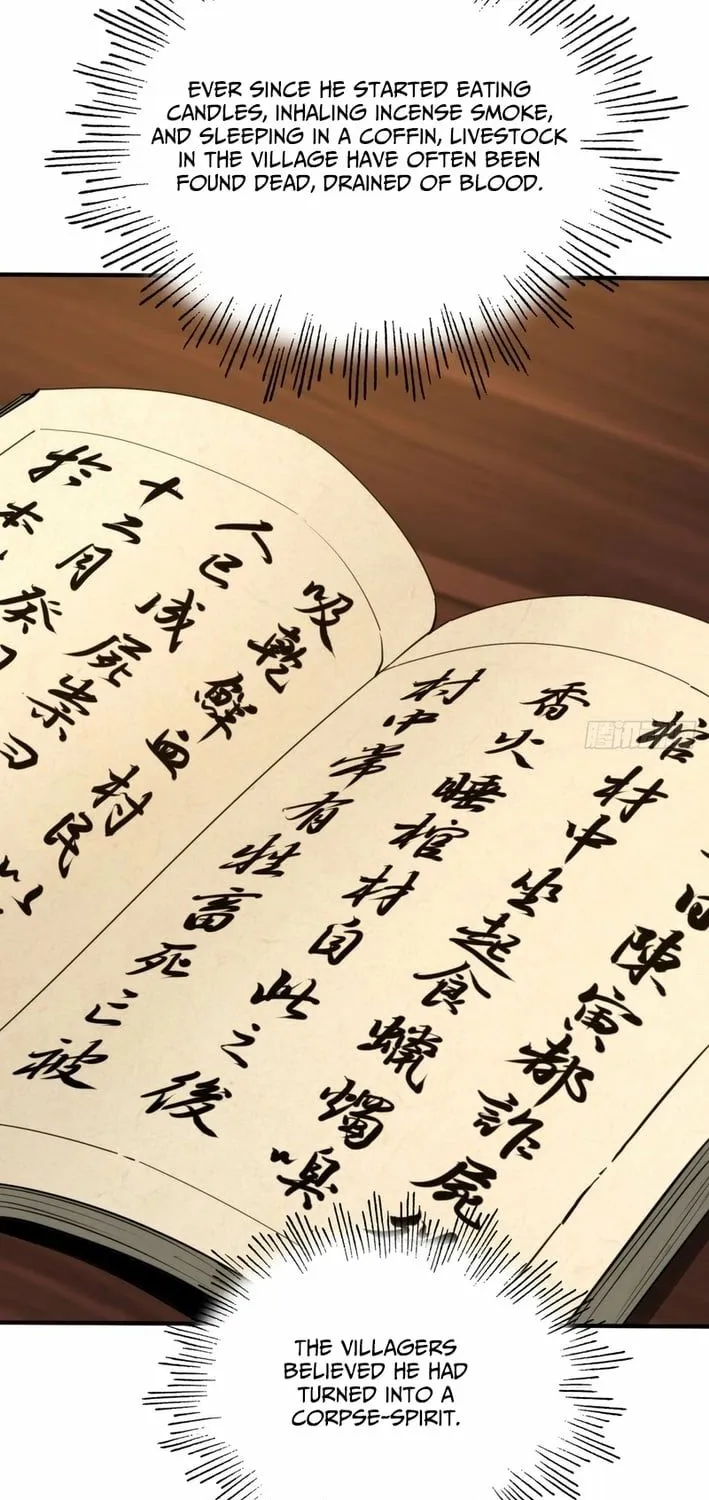 EVER SINCE HE STARTED EATING
CANDLES, INHALING INCENSE SMOKE,
AND SLEEPING IN A COFFIN, LIVESTOCK
IN THE VILLAGE HAVE OFTEN BEEN
FOUND DEAD, DRAINED OF BLOOD.
日陳寅都詐屍
棺材中坐起食蠟燭嗅
香火睡棺材自此之後
村中常有牲畜死亡被
吸乾鮮血村民以
人已成屍祟曰
十二月癸
於本
腾讯
THE VILLAGERS
BELIEVED HE HAD
TURNED INTO A
CORPSE-SPIRIT.